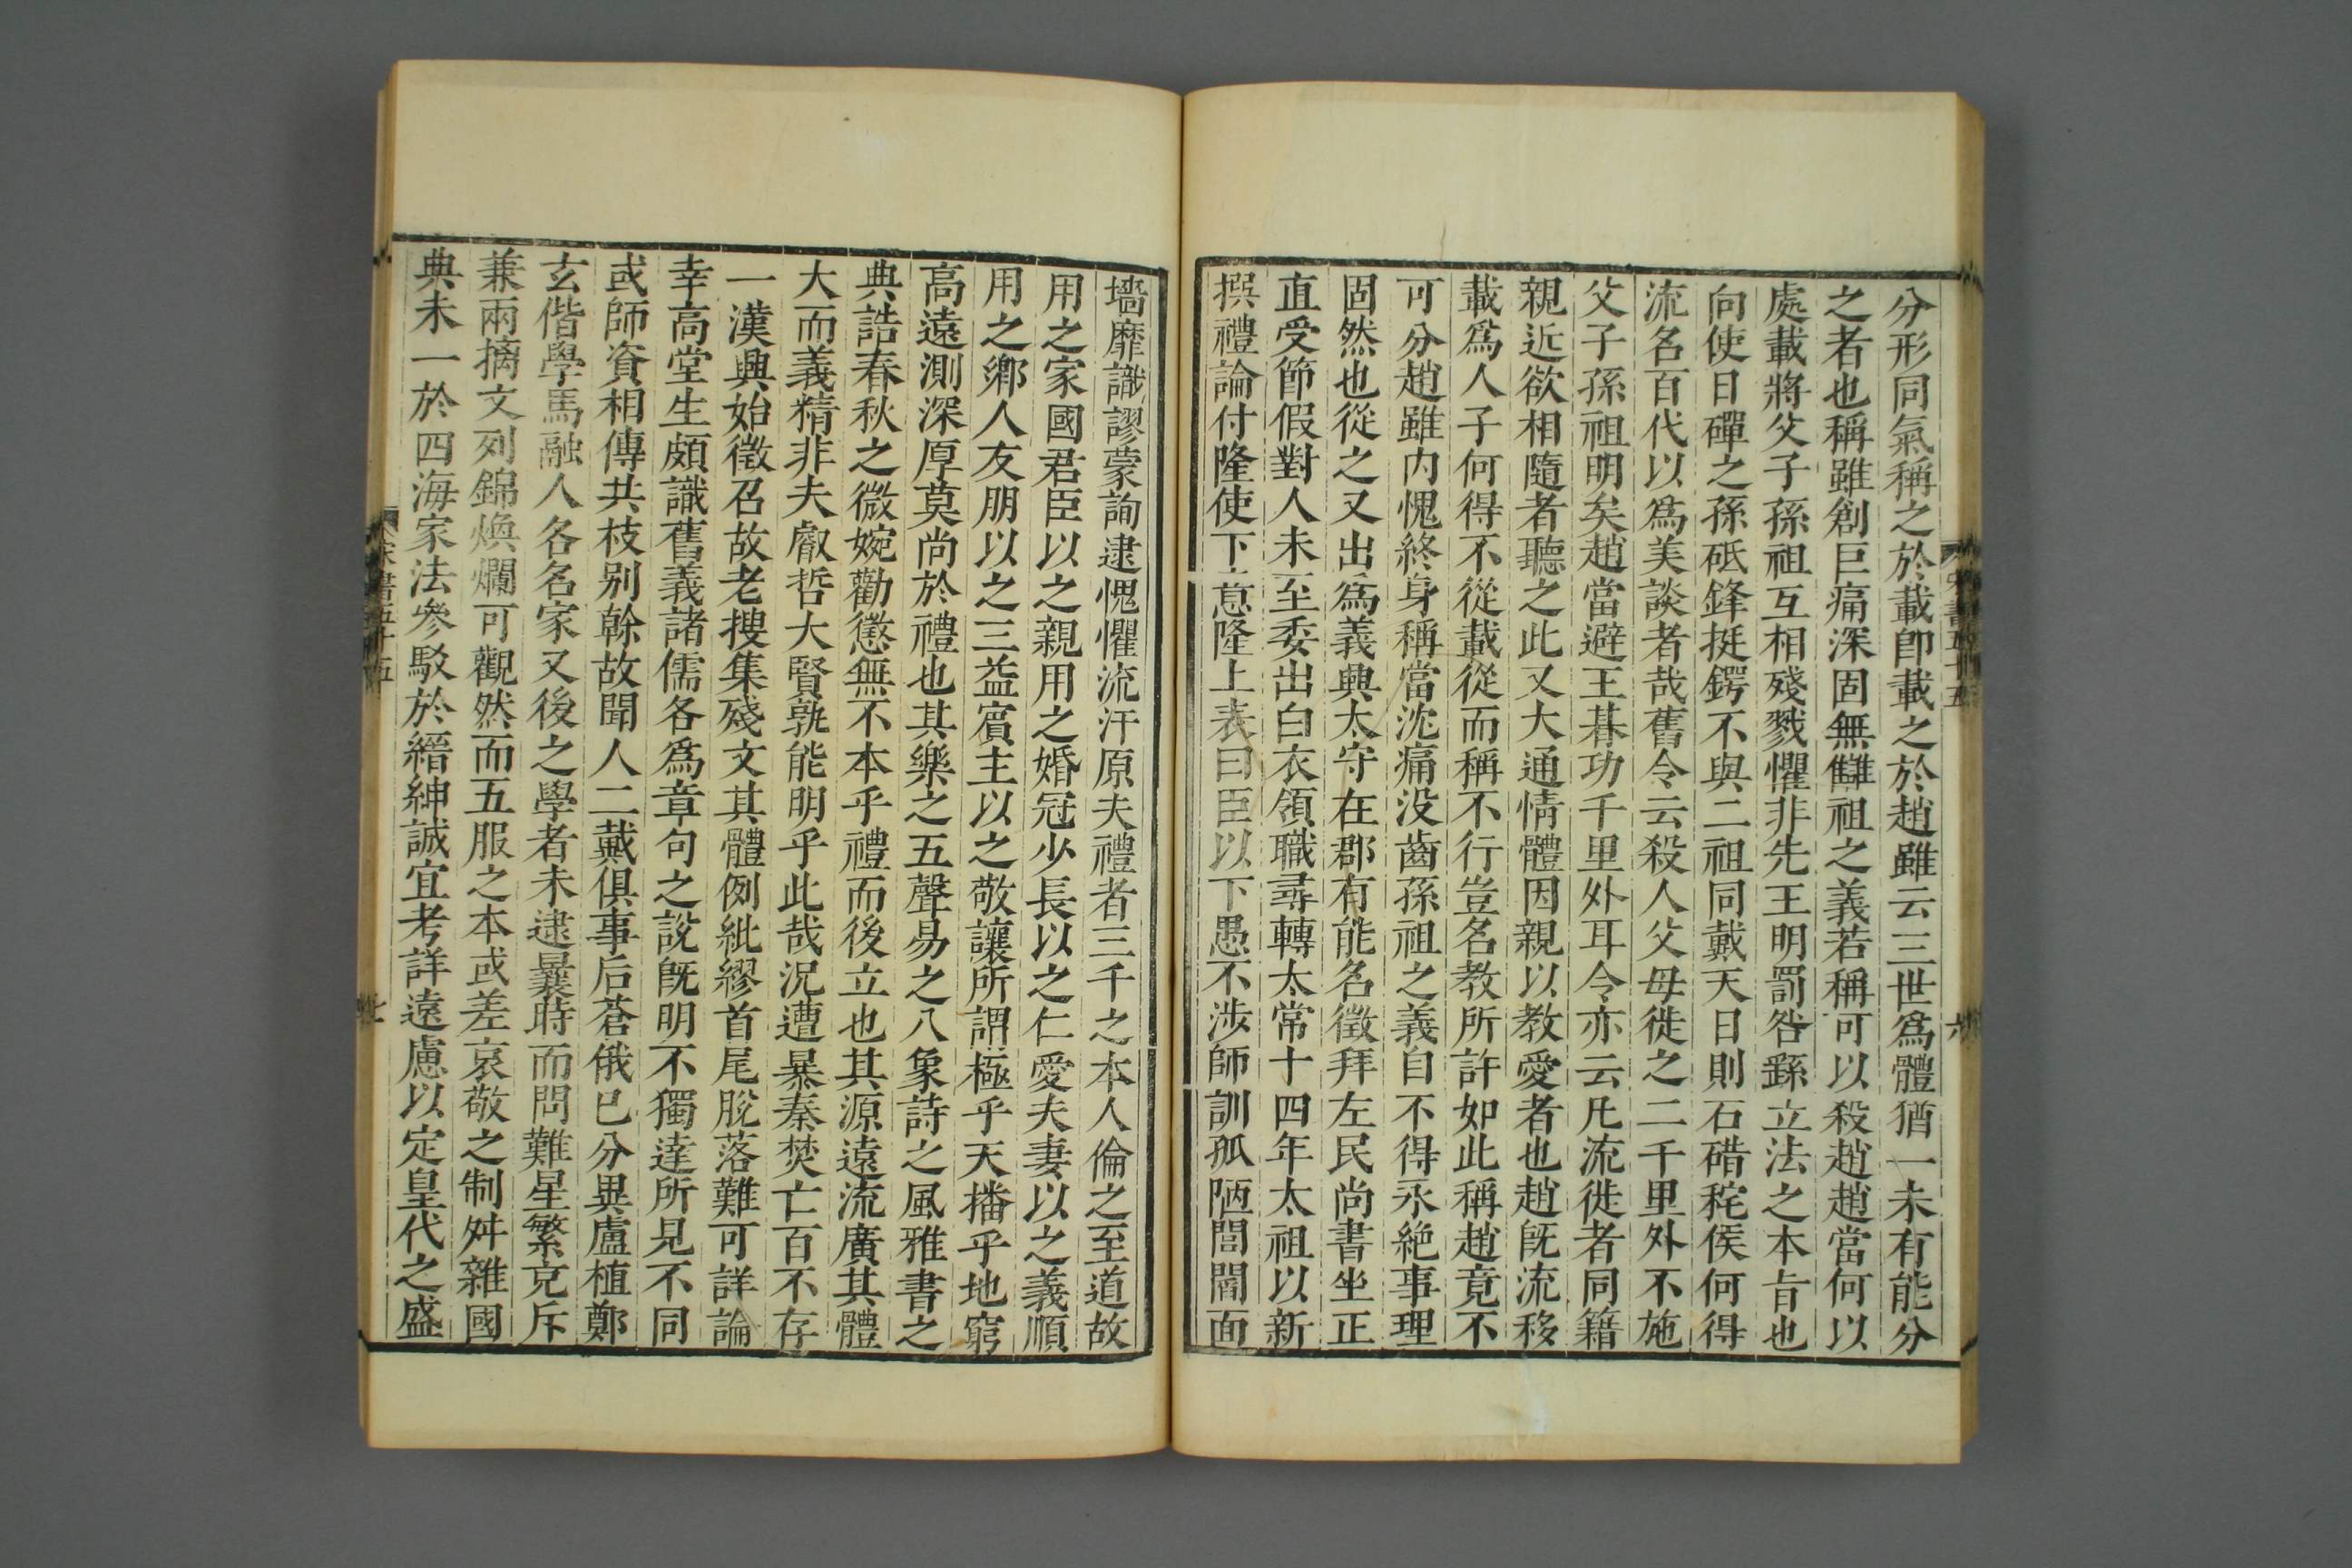 分形同氣稱之於載卽載之於趙雖云三世爲體猶一未有能分
之者也稱雖創巨痛深固無讎祖之義若稱可以殺趙趙當何以
處載將父子孫祖互相殘戮懼非先王明罰咎繇立法之本旨也
向使日磾之孫砥鋒挺鍔不與二祖同戴天日則石碏秺侯何得
流名百代以爲美談者哉舊令云殺人父母徙之二千里外不施
父子孫祖明矣趙當避王朞功千里外耳令亦云凡流徙者同籍
親近欲相隨者聽之此又大通情體因親以教愛者也趙旣流移
載爲人子何得不從載從而稱不行豈名教所許如此稱趙竟不
可分趙雖內愧終身稱當沈痛没齒孫祖之義自不得永絶事理
固然也從之又出爲義興太守在郡有能名徵拜左民尚書坐正
直受節假對人未至委出白衣領職尋轉太常十四年太祖以新
撰禮論付隆使下意隆上表曰臣以下愚不涉師訓孤陋閭閻面
墻靡識謬蒙詢逮愧懼流汗原夫禮者三千之本人倫之至道故
用之家國君臣以之親用之婚冠少長以之仁愛夫妻以之義順
用之鄉人友朋以之三益賓主以之敬讓所謂極乎天播乎地窮
高遠測深厚莫尚於禮也其樂之五聲易之八象詩之風雅書之
典誥春秋之微婉勸懲無不本乎禮而後立也其源遠流廣其體
大而義精非夫叡哲大賢孰能明乎此哉況遭暴秦焚亡百不存
一漢興始徵召故老搜集殘文其體例紕繆首尾脫落難可詳論
幸高堂生頗識舊義諸儒各爲章句之說旣明不獨達所見不同
或師資相傳共枝别幹故聞人二戴俱事后蒼俄已分異盧植鄭
玄偕學馬融人各名家又後之學者未逮曩時而問難星繁充斥
兼兩摛文列錦煥爛可觀然而五服之本或差哀敬之制舛雜國
典未一於四海家法參駁於縉紳誠宜考詳遠慮以定皇代之盛
宋書五十五
六
宋書五十五
七